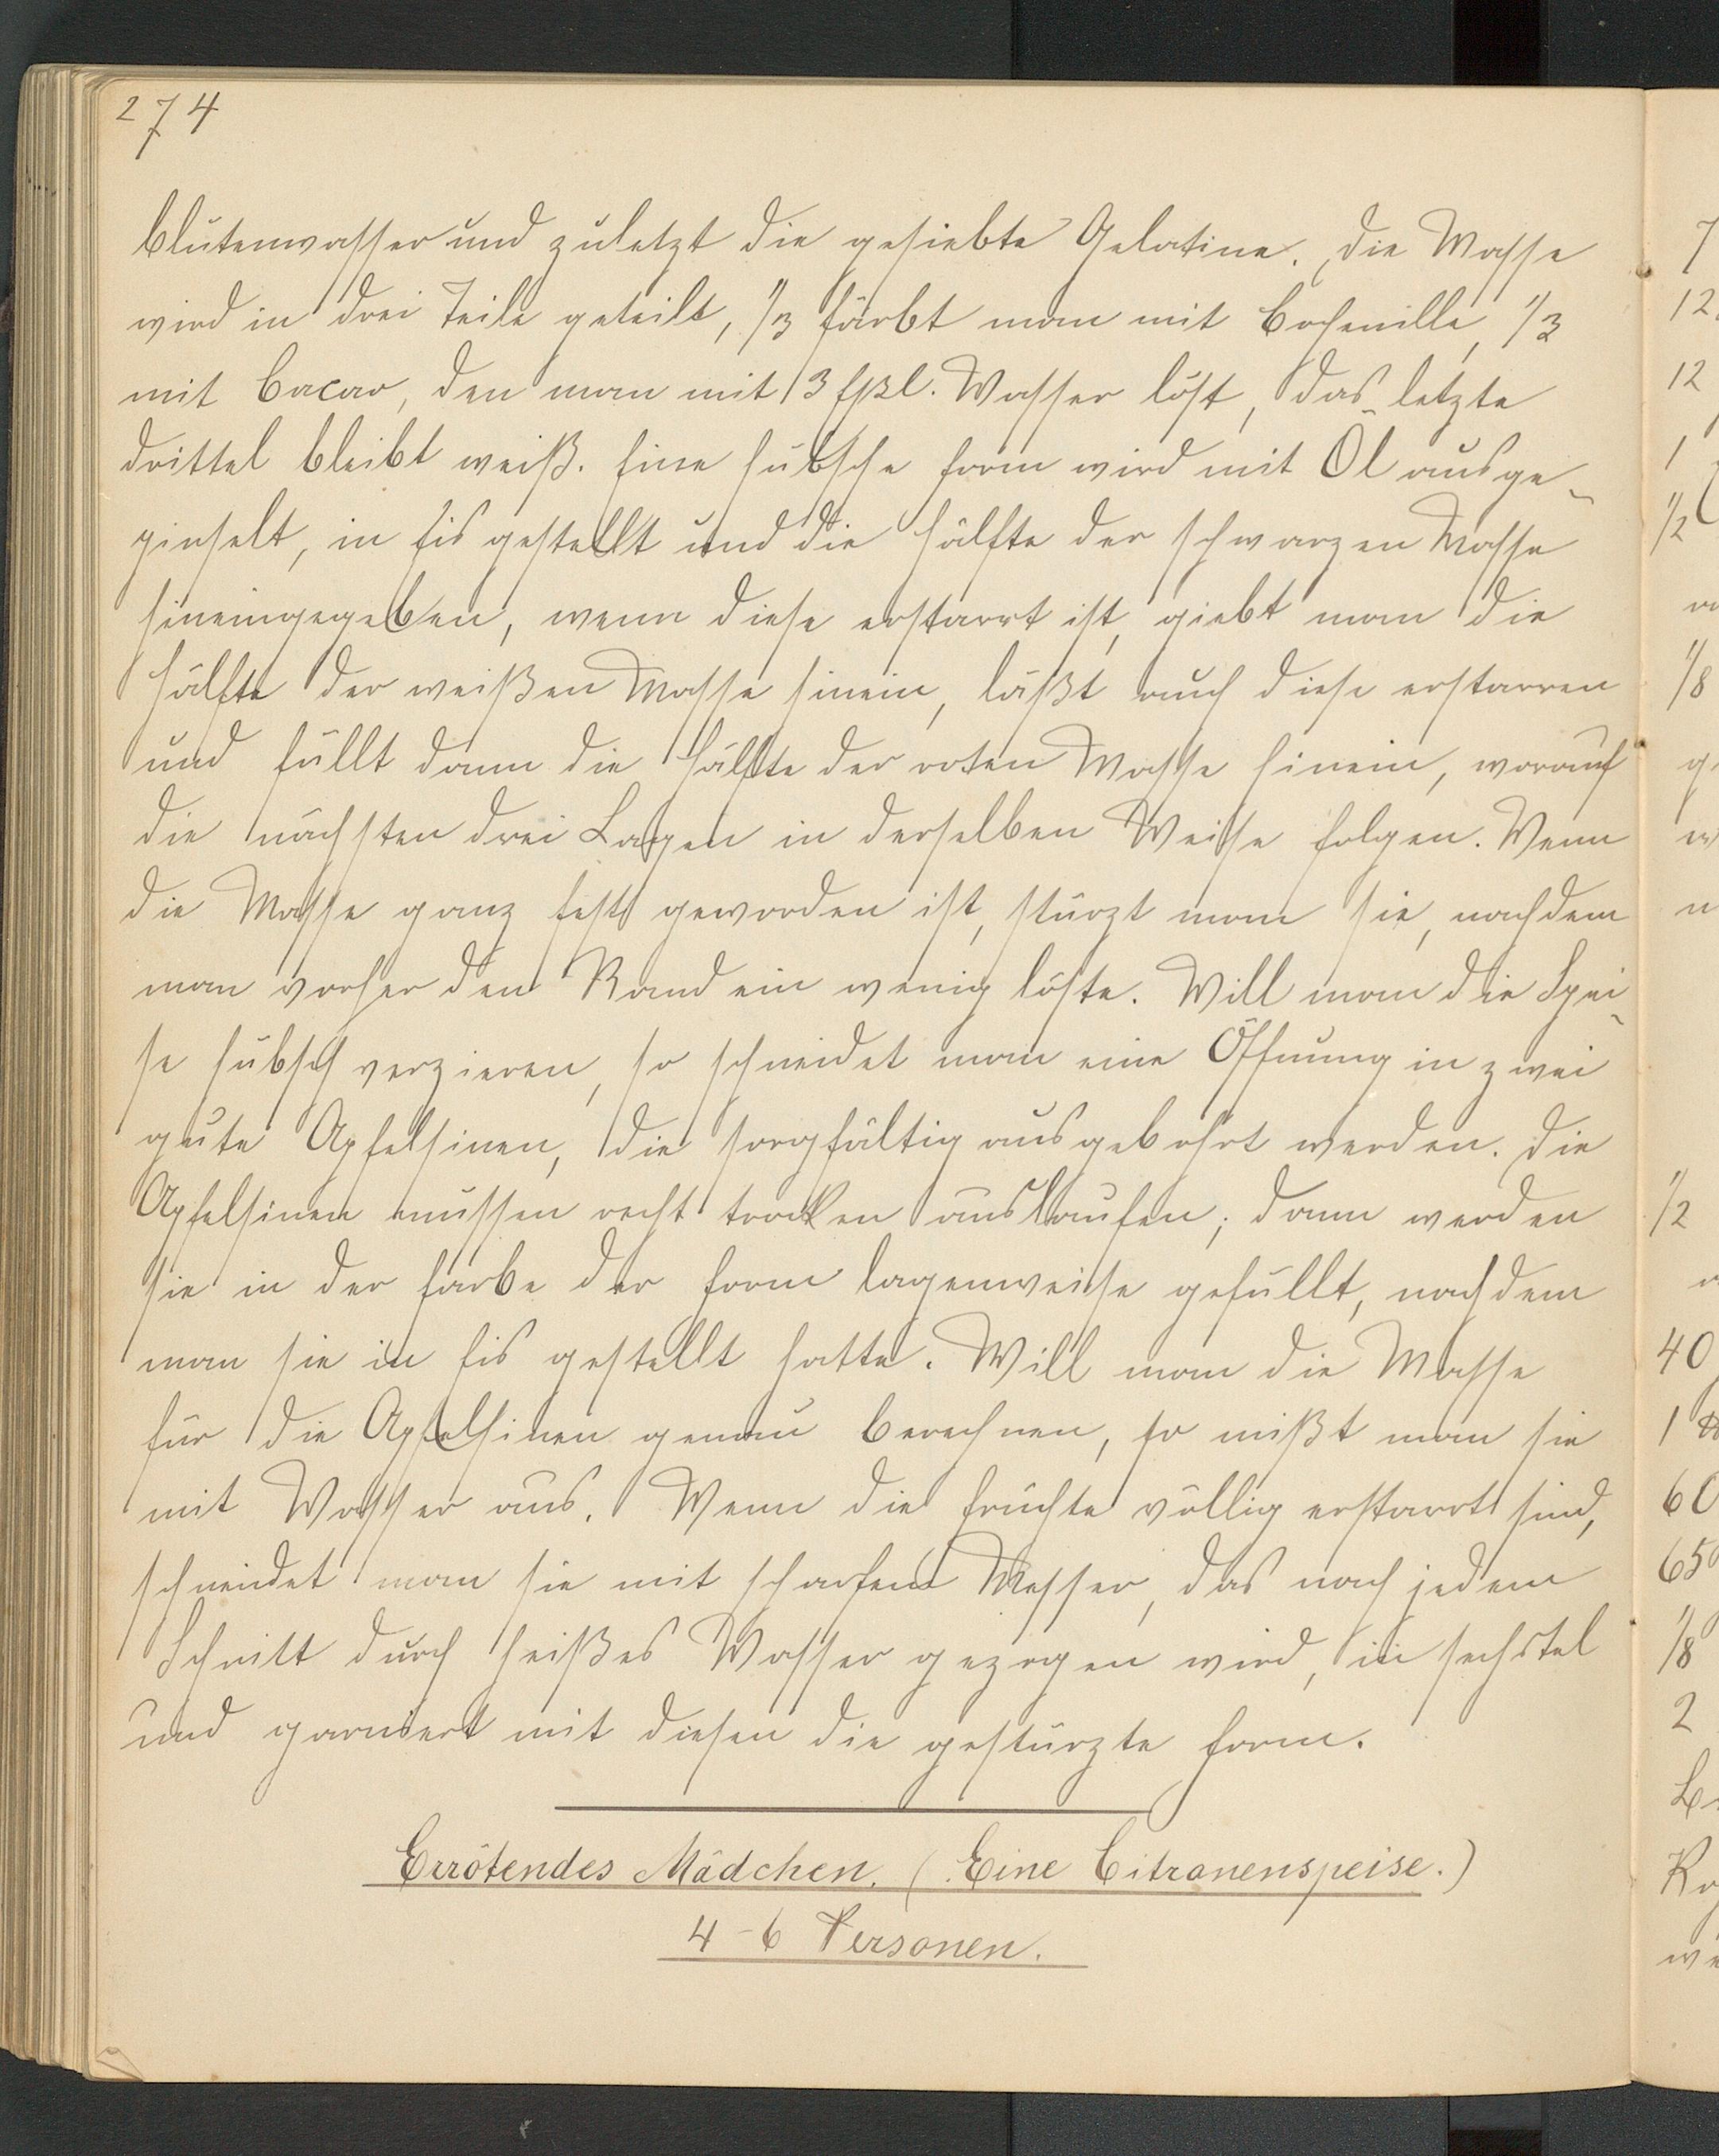 274
blütenwasser und zuletzt die gesiebte Gelatine. Die Masse
wird in drei Teile geteilt, 1/3 färbt man mit Cochenille, 1/3
mit Cacao, den man mit 3 Eßl. Wasser löst, das letzte
Drittel bleibt weiß. Eine hübsche Form wird mit Öl ausge-
pinselt, in Eis gestellt und die Hälfte der schwarzen Masse
hineingegeben, wenn diese erstarrt ist, giebt man die
Hälfte der weißen Masse hinein, läßt auch diese erstarren
und füllt dann die Hälfte der roten Masse hinein, worauf
die nächsten drei Lagen in derselben Weise folgen. Wenn
die Masse ganz fest geworden ist, stürzt man sie, nachdem
man vorher den Rand ein wenig löste. Will man die Spei-
se hübsch verzieren, so schneidet man eine Öffnung in zwei
gute Apfelsinen, die sorgfältig ausgebohrt werden. Die
Apfelsinen müssen recht trocken auslaufen; dann werden
sie in der Farbe der Form lagenweise gefüllt, nachdem
man sie in Eis gestellt hatte. Will man die Masse
für die Apfelsinen genau berechnen, so mißt man sie
mit Wasser aus. Wenn die Früchte völlig erstarrt sind,
schneidet man sie mit scharfem Messer, das nach jedem
Schnitt durch heißes Wasser gezogen wird, in sechstel
und garniert mit diesen die gestürzte Form.
Errötendes Mädchen. (Eine Citronenspeise.)
4-6 Personen.
7
12
12
1
1/2
1/8
1/2
40
1
60
65
1/8
2